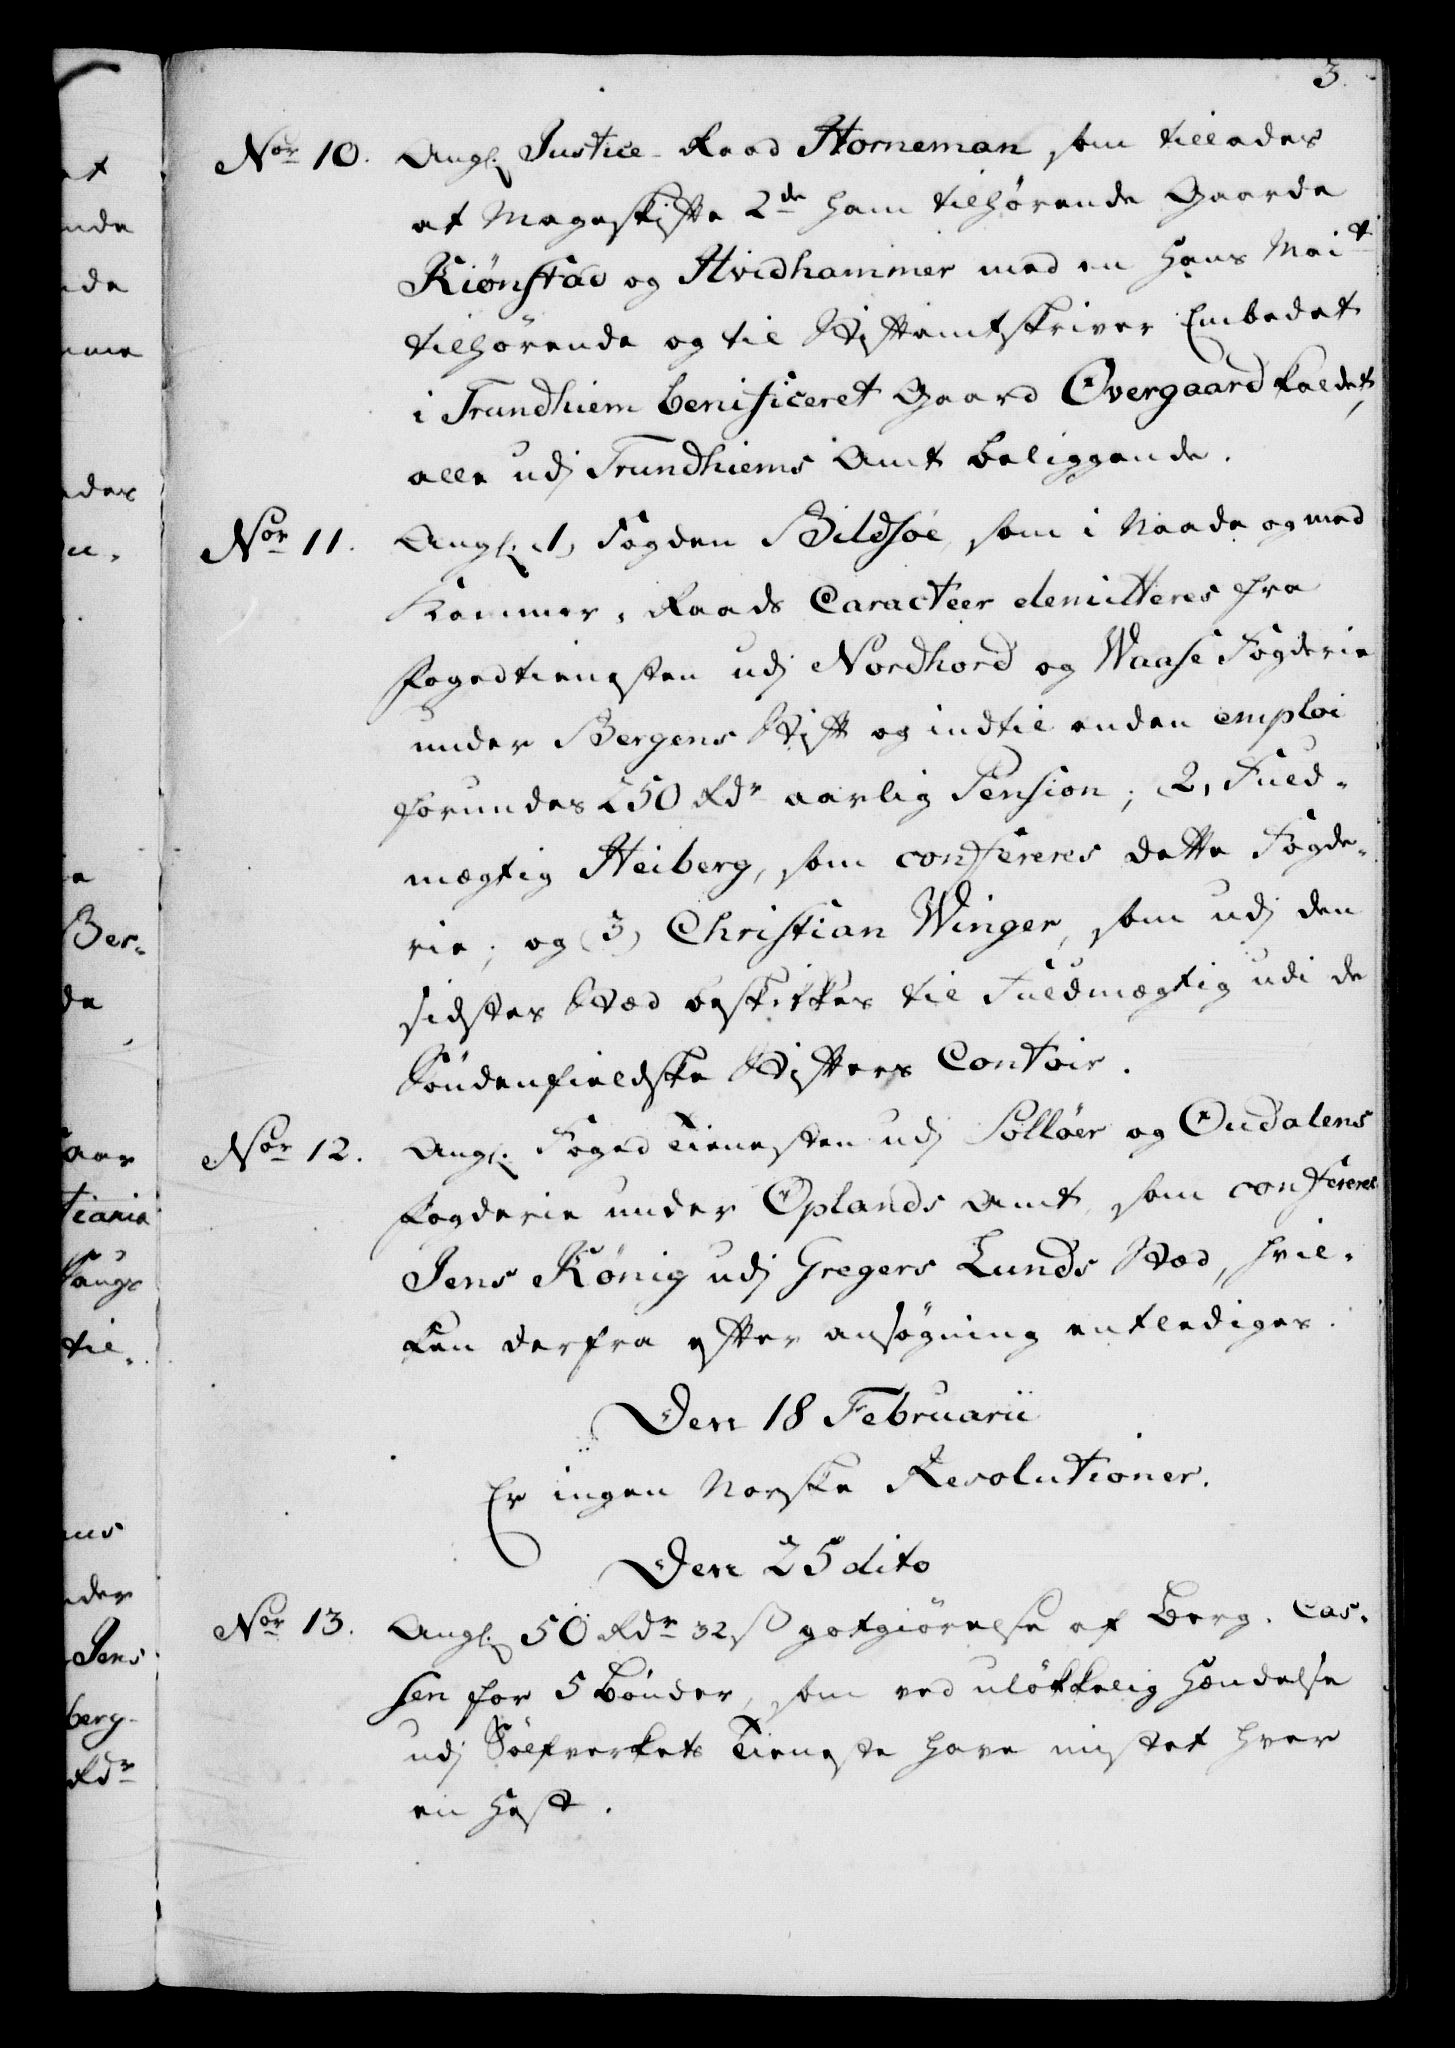 3.
Nor 10. Angl: Justice-Raad Horneman som tillades
at Mageskifte 2de ham tilhørende Gaarde
Kiønstad og Hvidhammer med en Hans Mait
tilhørende og til Stiftamtskriver Embedet
i Trundhiem benificeret Gaard Overgaard kaldet,
alle udj Trundhiems Amt beliggende.
Nor 11. Angl: 1, Fogden Bildsøe, som i Naade og med
Kammer-Raads Caracteer demitteres fra
Fogedtienesten udj Nordhord og Waase Fogderie
under Bergens Stift og indtil anden emploi
forundes 250 Rdr aarlig Pension; 2, Fuld-
mægtig Heiberg, som confereres dette Fogde-
rie; og 3, Christian Winger, som udj den
sidstes Stæd beskikkes til Fuldmægtig udi de
Søndenfieldske Stifters Contoir.
Nor 12. Angl: Foged Tienesten udj Solløer og Oudalens
Fogderie under Oplands Amt, som confereres
Jens König udj Gregers Lunds Stæd, hvil-
ken derfra efter ansøgning entlediges.
Den 18 Februarii
Er ingen Norske Resolutioner.
Den 25 dito
Nor 13. Angl: 50 Rdr 32 ß godtgiørelse af Berg-Cas-
sen for 5 Bønder, som ved uløkkelig Hændelse
udj Sølfverkets Tieneste have mistet hver
en Hest.
at
nde
de
mme
ades
Ber-
de
aar
tiania
til-
nder
Jens
berg-
Rdr